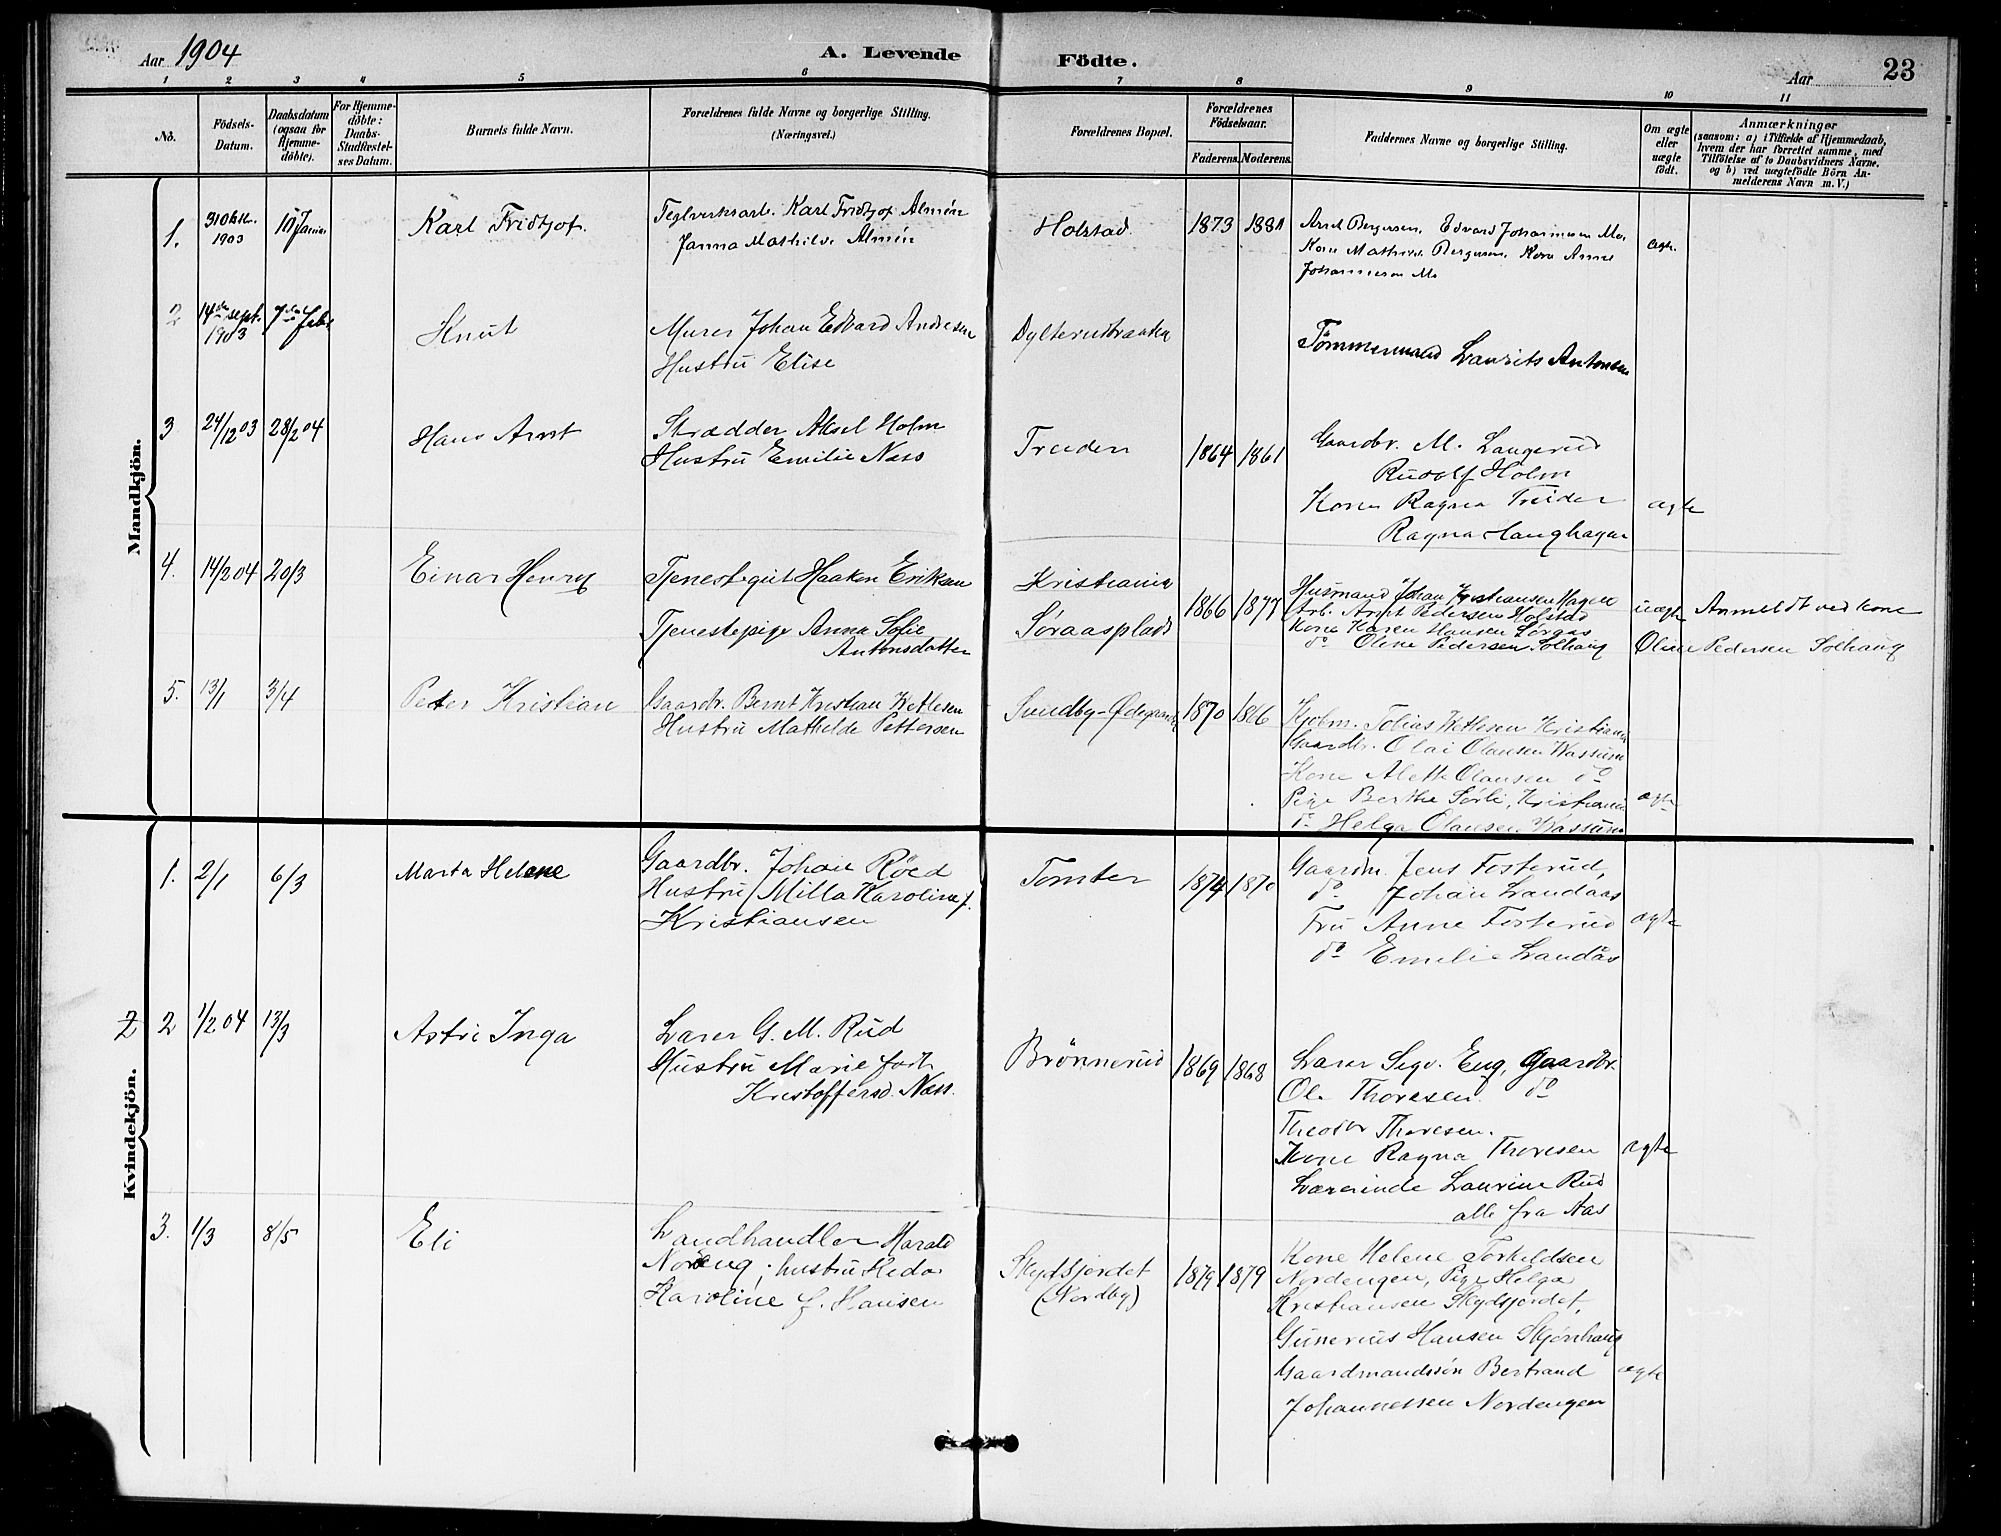 Aar 1904
A. Levende Födte.
Aar
23
1 2 3 4 5 6 7 8 9 10 11
No.
Födsels-Datum.
Daabsdatum (ogsaa for Hjemme-döbte).
For Hjemme-döbte: Daabs-Stadfæstel-ses Datum.
Barnets fulde Navn.
Forældrenes fulde Navne og borgerlige Stilling.
(Næringsvei.)
Forældrenes Bopæl.
Forældrenes Födselsaar.
Faderens. Moderens.
Faddernes Navne og borgerlige Stilling.
Om ægte eller uægte födt.
Anmærkninger
(saasom: a) i Tilfælde af Hjemmedaab,
hvem der har forrettet samme, med
Tilföielse af to Daabsvidners Navne,
og b) ved uægtefödte Börn An-
melderens Navn m. V.)
Mandkjön.
1. 31 Okt. 1903
Karl Fridtjof.
Teglverksarb. Karl Fridtjof Almén
Janna Mathilde Almén
Holstad
1873
Arnt Bergersen, Edvard Johannesen Mo.
Kone Mathilde Bergersen, Kone Anne
Johannesen Mo
ægte
2 14de sept. 1903 7de Febr
Knut
Murer Johan Edvard Andresen
Hustru Elise
Tømmermand Laurits Antonsen
3 24/12 03 28/2 04
Hans Arnt
Skrædder Aksel Holm
Hustru Emilie Næss
Treider
1864 1861
Gaardbr. M. Langerud
Rudolf Holm
Kone Ragna Treider
Ragna Haughagen
ægte
4. 14/2 04 20/3
Einar Henry
Tjenestegut Haaken Eriksen
Tjenestepige Anna Sofie
Antonsdatter
Kristiania
Søraasplads
1866 1877
Husmand Johan Kristiansen Hagen
Arb. Arnt Pedersen Holstad
Kone Karen Hansen Søraas
do Oline Pedersen Solhaug
uægte
Anmeldt ved kone
Oline Pedersen Solhaug
5. 13/1 3/4
Peter Kristian
Gaardbr. Bernt Kristian Ketlesen
Hustru Mathilde Pettersen
Sundby-Ødegaard
1870 1866
Kjøbm. Tobias Ketlesen Kristiania
Gaardbr. Olai Olausen Wassum
Kone Alette Olausen do
Pige Berthe Sørli, Kristiania
do Helga Olausen Wassum
ægte
Kvindekjön.
1. 2/1 6/3
Marta Helene
Gaardbr. Johan Røed
Hustru Milla Karoline f.
Kristiansen
Tomter
1874 1870
Gaardbr. Jens Fosterud,
do Johan Landaas
Fru Anne Fosterud
do Emilie Landås
ægte
2 2 1/2 04 13/3
Astri Inga
Lærer G. M. Rud
Hustru Marie født
Kristoffersd. Næss.
Brønnerud
1869 1868
Lærer Sigv. Eng, Gaardbr.
Ole Thoresen. do
Theodor Thoresen.
Kone Ragna Thoresen
Lærerinde Laurine Rud
alle fra Aas
ægte
3. 1/3 8/5
Eli
Landhandler Harald
Noreng; hustru Hedda
Karoline f. Hansen
Skydsjordet
(Nordby)
1879 1879
Kone Helene Torkeldsen
Nordengen, Pige Helga
Kristiansen Skydsjordet,
Gunerius Hansen Skjønhaug
Gaardmandssøn Bertrand
Johannessen Nordengen
ægte